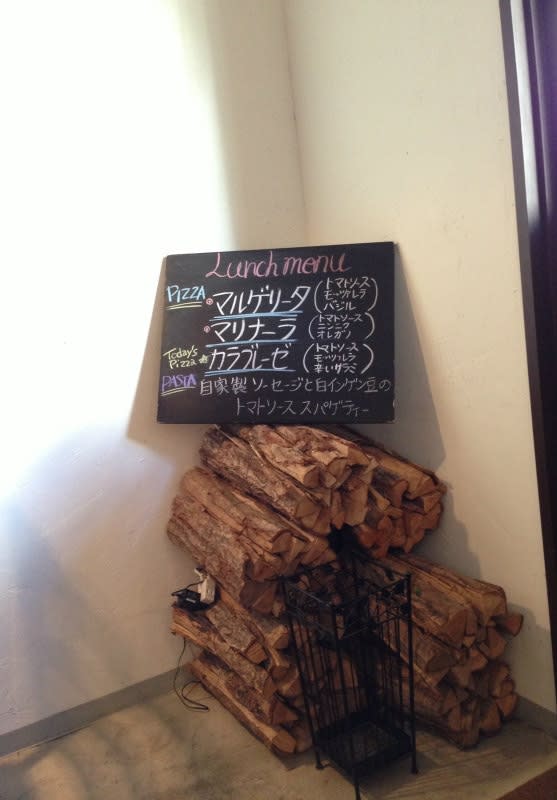 Lunch menu
PIZZA マルゲリータ (トマトソース
モッツァレラ
バジル)
マリナーラ (トマトソース
ニンニク
オレガノ)
Today's
Pizza ★ カラブレーゼ (トマトソース
モッツァレラ
辛いサラミ)
PASTA 自家製 ソーセージと白インゲン豆の
トマトソース スパゲティー